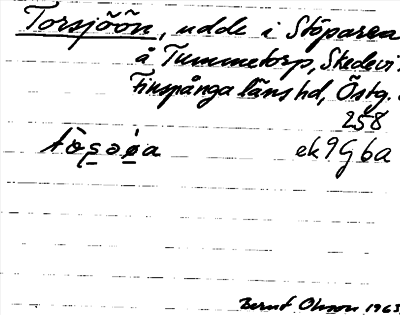 Torsjöön, udde i Stöparen
å Tummetorp, Skedevi s
Finspånga läns hd, Östg.
258
ek 9G 6a
Bernt Olsson 1963